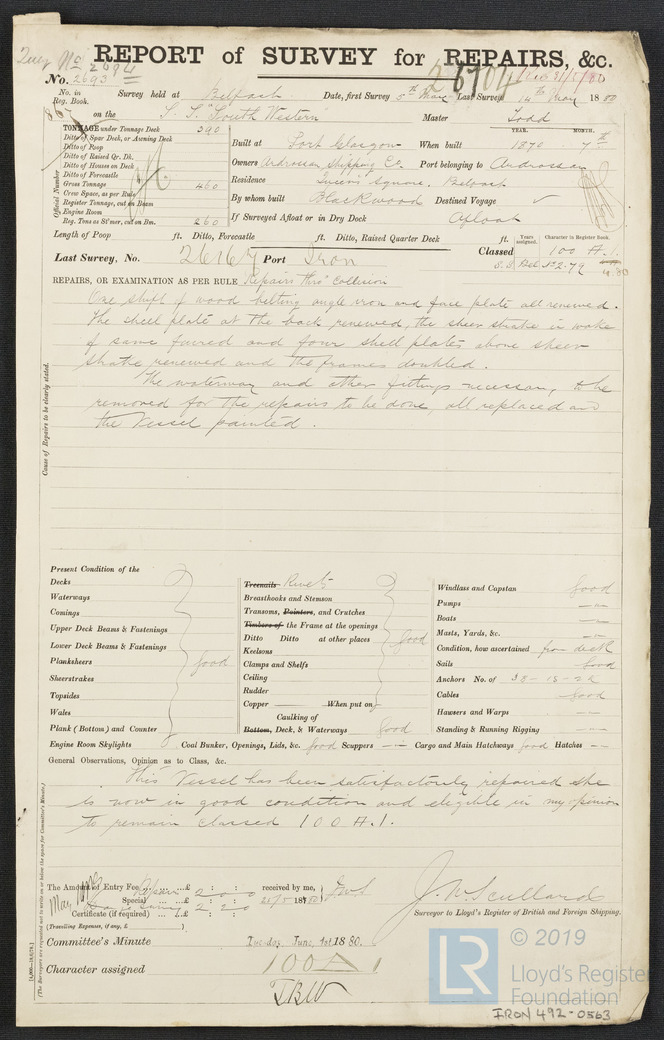 REPORT of SURVEY for REPAIRS, &c.
No. 2693 2694
26704
No. in Reg. Book.
Survey held at Belfast Date, first Survey 5th May Last Survey 14th May 1880
on the S. S. "South Western" Master Todd
TONNAGE under Tonnage Deck 390
Ditto of Spar Deck, or Awning Deck
Ditto of Poop
Ditto of Raised Qr. Dk.
Ditto of Houses on Deck
Ditto of Forecastle
Gross Tonnage 460
Crew Space, as per Rule
Register Tonnage, cut on Beam
Engine Room
Reg. Tons as St'mer, cut on Bm. 260
Official Number
YEAR. MONTH.
Built at Port Glasgow When built 1870 7th
Owners Ardrossan Shipping Co. Port belonging to Ardrossan
Residence Queens Square, Belfast
By whom built Blackwood Destined Voyage
If Surveyed Afloat or in Dry Dock Afloat
Length of Poop ft. Ditto, Forecastle ft. Ditto, Raised Quarter Deck ft.
Years assigned. Character in Register Book.
Last Survey, No. 26167 Port Iron Classed 100 A.1.
S.S. Bel. No 2-79
4.80
REPAIRS, OR EXAMINATION AS PER RULE Repairs thro' Collision
One shift of wood belting angle iron and face plate all renewed.
The shell plate at the back renewed, the sheer strake in wake
of same faired and four shell plates above sheer
strake renewed and the frames doubled.
The waterway and other fittings necessary to be
removed for the repairs to be done, all replaced and
the Vessel painted.
Cause of Repairs to be clearly stated.
Present Condition of the
Decks
Waterways
Comings
Upper Deck Beams & Fastenings
Lower Deck Beams & Fastenings
Planksheers good
Sheerstrakes
Topsides
Wales
Plank (Bottom) and Counter
Treenails Rivets
Breasthooks and Stemson
Transoms, Pointers, and Crutches
Timbers of the Frame at the openings
Ditto Ditto at other places good
Keelsons
Clamps and Shelfs
Ceiling
Rudder
Copper When put on
Caulking of
Bottom, Deck, & Waterways good
Windlass and Capstan good
Pumps —"—
Boats —"—
Masts, Yards, &c. —"—
Condition, how ascertained from deck
Sails good
Anchors No. of 3B - 1S - 2K
Cables good
Hawsers and Warps —"—
Standing & Running Rigging —"—
Engine Room Skylights Coal Bunker, Openings, Lids, &c. good Scuppers —"— Cargo and Main Hatchways good Hatches —"—
General Observations, Opinion as to Class, &c.
This Vessel has been satisfactorily repaired she
is now in good condition and eligible in my opinion
to remain classed 100 A.1.
The Amount of Entry Fee £ 2 : 0 : 0 received by me,
Special £ 21/5/1880
Certificate (if required) £ 2 2 0
(Travelling Expenses, if any, £ )
J. W. Scullard
Surveyor to Lloyd's Register of British and Foreign Shipping.
Committee's Minute Tuesday, June, 1st 1880.
Character assigned 100 A 1
(The Surveyors are requested not to write on or below the space for Committee's Minute.)
LR
© 2019
Lloyd's Register
Foundation
IRON 492-0563